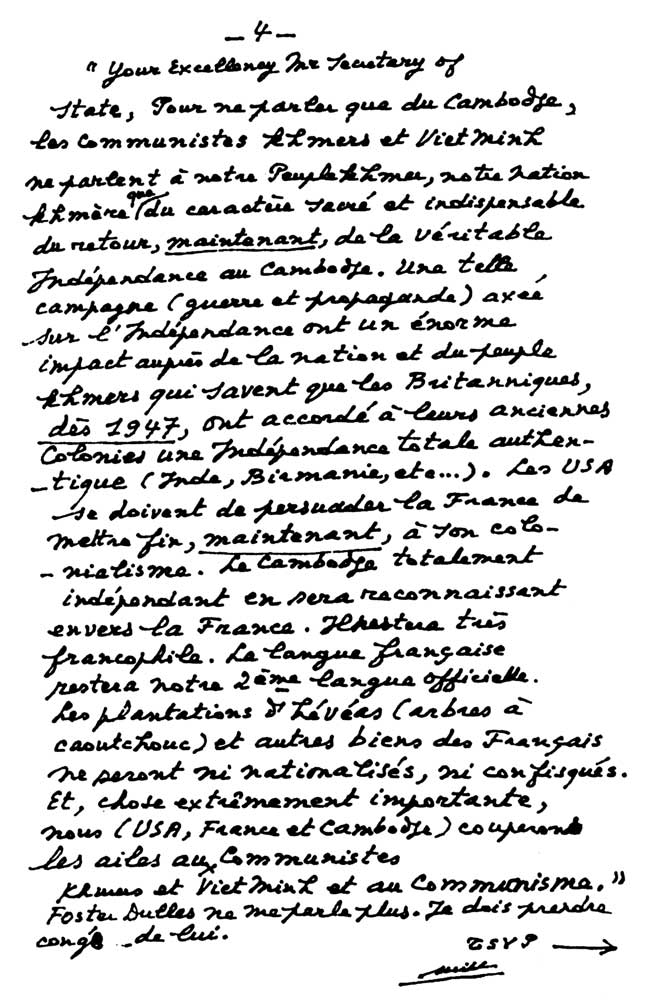 - 4 -
"Your Excellency Mr Secretary of
State, Pour ne parler que du Cambodge,
les Communistes Khmers et Viet Minh
ne parlent à notre Peuple Khmer, notre Nation
Khmère que du caractère sacré et indispensable
du retour, maintenant, de la véritable
Indépendance au Cambodge. Une telle
campagne (guerre et propagande) axée
sur l'Indépendance ont un énorme
impact auprès de la nation et du peuple
Khmers qui savent que les Britanniques,
dès 1947, ont accordé à leurs anciennes
Colonies une Indépendance totale authen-
-tique (Inde, Birmanie, etc...). Les USA
se doivent de persuader la France de
mettre fin, maintenant, à son colo-
-nialisme. Le Cambodge totalement
indépendant en sera reconnaissant
envers la France. Il restera très
francophile. La langue française
restera notre 2ème langue officielle.
Les plantations d'hévéas (arbres à
caoutchouc) et autres biens des Français
ne seront ni nationalisés, ni confisqués.
Et, chose extrêmement importante,
nous (USA, France et Cambodge) couperons
les ailes aux Communistes
Khmers et Viet Minh et au Communisme."
Foster Dulles ne me parle plus. Je dois prendre
congé de lui.
TSVP →